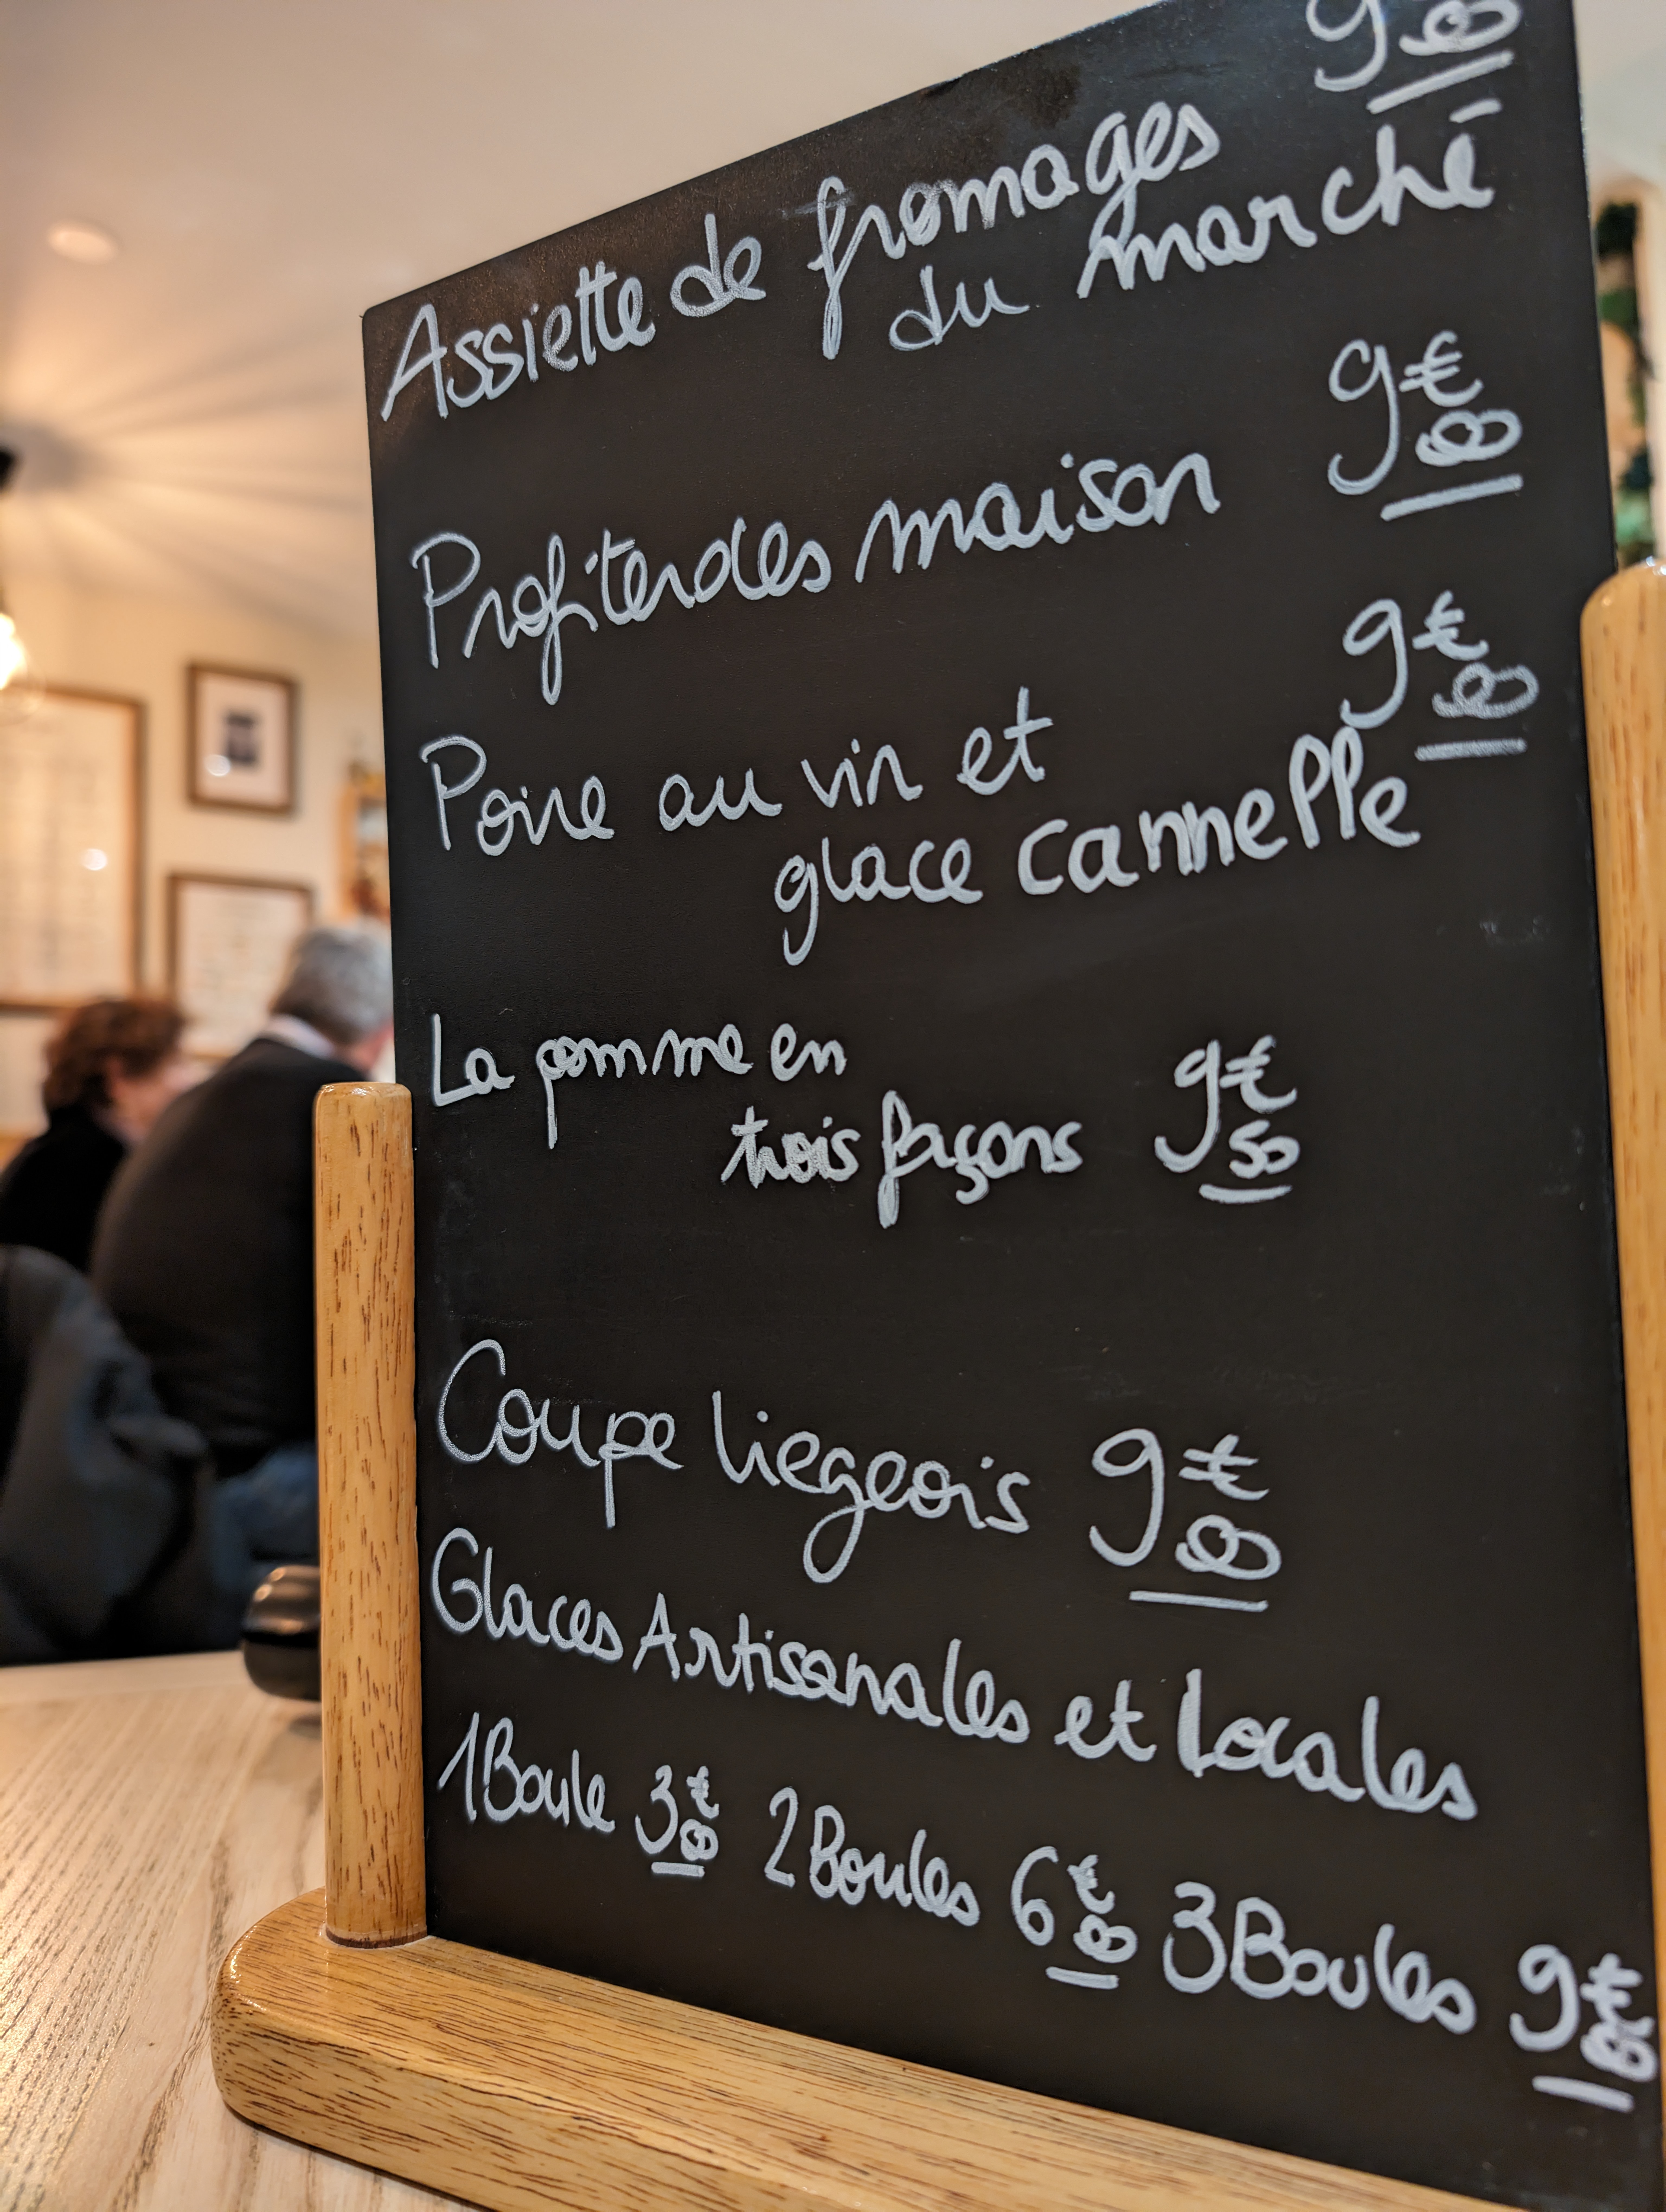 Assiette de fromages 9 00
du marché
Profiteroles maison 9€00
Poire au vin et 9€00
glace cannelle
La pomme en
trois façons 9€50
Coupe liegeois 9€00
Glaces Artisanales et Locales
1 Boule 3€00 2 Boules 6€00 3 Boules 9€00